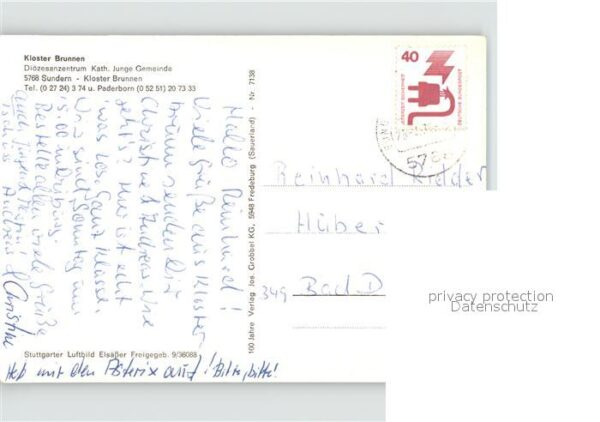 Kloster Brunnen
Diözesenzentrum Kath. Junge Gemeinde
5768 Sundern - Kloster Brunnen
Tel. (0 27 24) 3 74 u. Paderborn (0 52 51) 20 73 33
Hallo Reinhard!
Viele Grüße aus Kloster
Brunnen senden Dir
Christine & Andreas. Wie
geht's? Hier ist echt
was los. Ganz Klasse.
Wir sind Sonntag um
Bestelle allen viele Grüße
Tschüss Andreas & Christine
Heb mir den Asterix auf! Bitte, bitte!
Stuttgarter Luftbild Elsäßer Freigegeb. 9/36088
160 Jahre Verlag Jos. Grobbel KG, 5948 Fredeburg (Sauerland) - Nr. 7138
40
JEDERZEIT SICHERHEIT
DEUTSCHE BUNDESPOST
576
Reinhard Ridder
Hüber
349 Bad D
privacy protection
Datenschutz